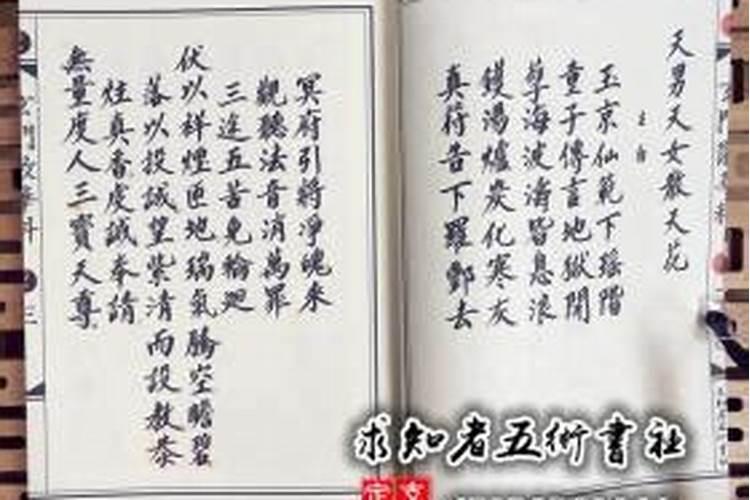 天男天女散天花
玉京仙範下瑤階
童子傳言地獄開
孽海波濤皆息浪
鑊湯爐炭化寒灰
真符告下羅酆去
冥府引將凈魄來
觀聽法音消萬罪
三途五苦免輪迴
伏以祥煙匝地瑞氣騰空瞻碧
落以投誠望紫清而設教恭
炷真香虔誠奉請
無量度人三寶天尊
三
求知者五術書社